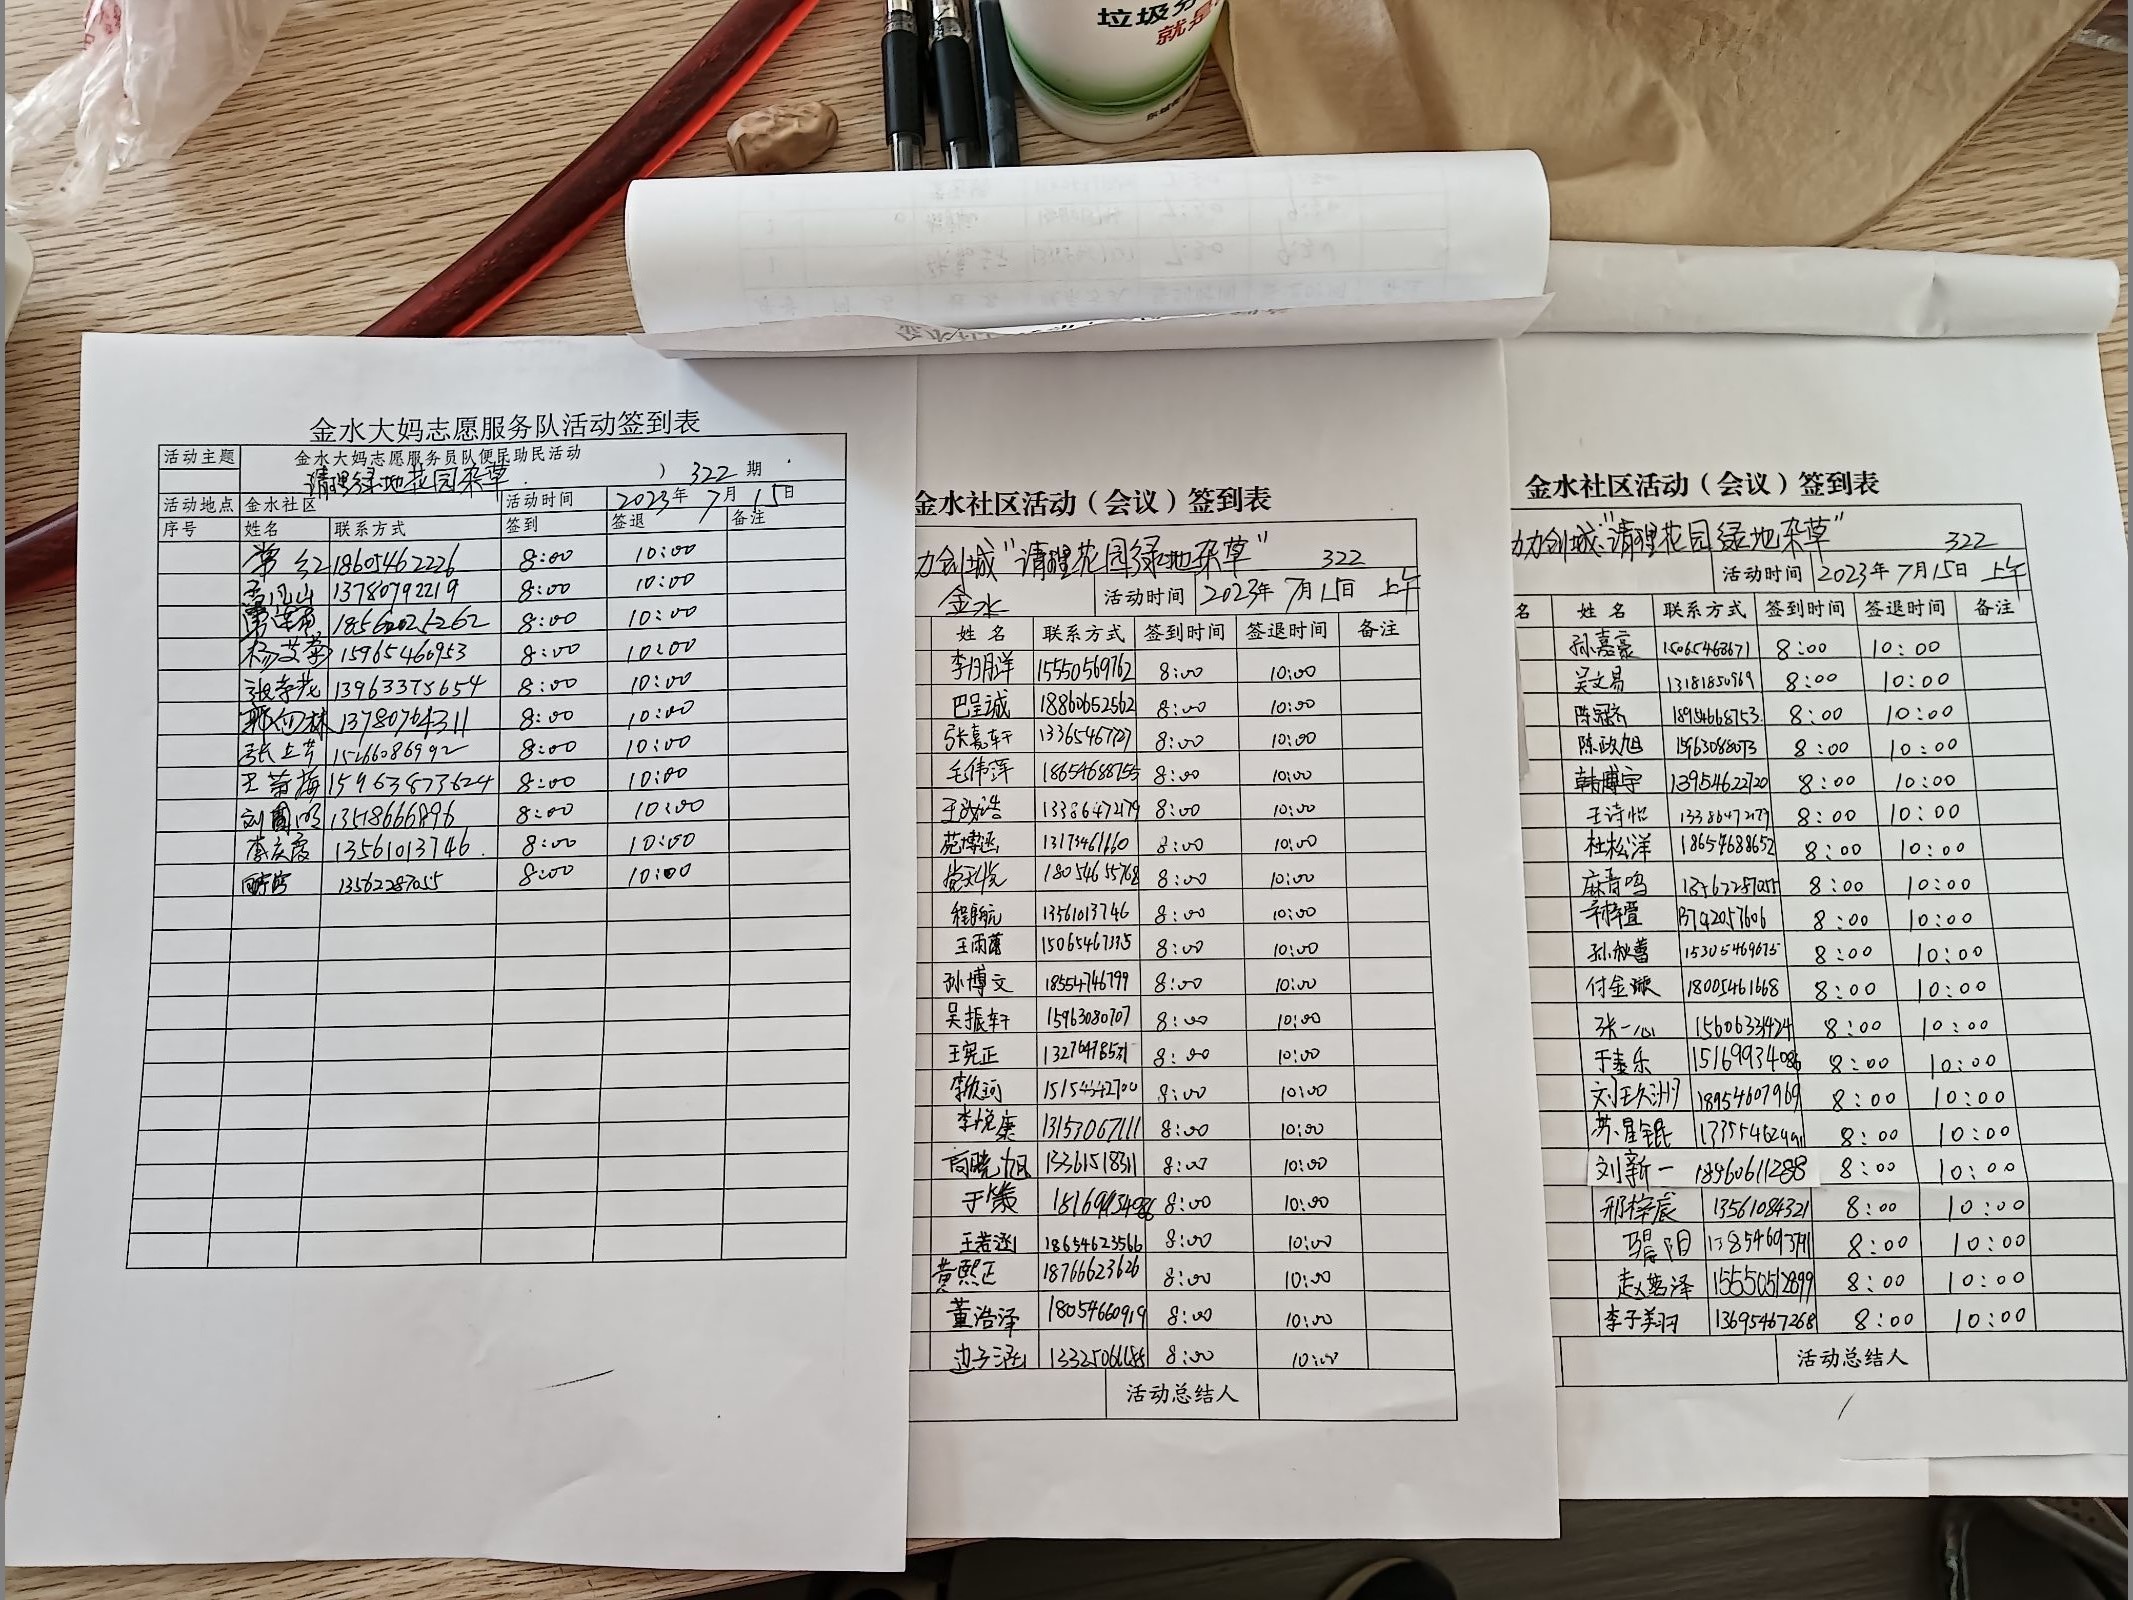 垃圾分
就是
金水大妈志愿服务队活动签到表
活动主题 金水大妈志愿服务员队便民助民活动
清理绿地花园杂草 ) 322 期
活动地点 金水社区 活动时间 2023年 7月 15日
序号 姓名 联系方式 签到 签退 备注
常红 18605462226 8:00 10:00
13780792219 8:00 10:00
18562025262 8:00 10:00
杨艾荣 15965460953 8:00 10:00
张李花 13963375654 8:00 10:00
郭何林 13780764311 8:00 10:00
张上芹 15266086992 8:00 10:00
王荣梅 15963873624 8:00 10:00
刘国鸣 13518666896 8:00 10:00
李庆霞 13561013746 8:00 10:00
13562287055 8:00 10:00
金水社区活动（会议）签到表
力创城“清理花园绿地杂草” 322
金水 活动时间 2023年 7月15日 上午
姓名 联系方式 签到时间 签退时间 备注
李月洋 15550569762 8:00 10:00
巴呈诚 18860652562 8:00 10:00
张嘉轩 13365467727 8:00 10:00
毛伟萍 8:00 10:00
13386472179 8:00 10:00
范博涵 13173461160 8:00 10:00
18054655768 8:00 10:00
程航 13561013746 8:00 10:00
王雨菡 15065467335 8:00 10:00
孙博文 18554746799 8:00 10:00
吴振轩 15963080707 8:00 10:00
王宪正 13276478531 8:00 10:00
李欣珂 15154642700 8:00 10:00
李悦康 13153067111 8:00 10:00
13361518311 8:00 10:00
于策 15169934086 8:00 10:00
王若涵 18654623566 8:00 10:00
黄熙正 18766623626 8:00 10:00
董浩泽 18054660919 8:00 10:00
边子涵 8:00 10:00
活动总结人
金水社区活动（会议）签到表
力创城“清理花园绿地杂草” 322
活动时间 2023年7月15日 上午
名 姓名 联系方式 签到时间 签退时间 备注
孙嘉豪 15065463671 8:00 10:00
吴文易 13181850969 8:00 10:00
陈冠齐 18954668753 8:00 10:00
陈政旭 15963088073 8:00 10:00
韩博宇 13954622720 8:00 10:00
王诗怡 13386472179 8:00 10:00
杜松洋 18654688652 8:00 10:00
麻青鸣 13562287055 8:00 10:00
8:00 10:00
孙秋蕾 15305469675 8:00 10:00
付金璇 18005461668 8:00 10:00
张一心 15606331424 8:00 10:00
于泰乐 15169934086 8:00 10:00
刘王久洲 18954607969 8:00 10:00
苏星铭 8:00 10:00
刘新一 18960611288 8:00 10:00
邢梓宸 13561084321 8:00 10:00
8:00 10:00
赵茗泽 15550512899 8:00 10:00
李子美羽 13695467268 8:00 10:00
活动总结人